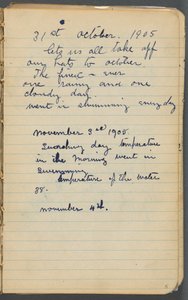 31st october. 1905
lets us all take off
our hats to october
The finest - ever
one rainy and one
cloudy day.
went in swimming everyday
november 3rd 1905.
Scorching day temperature
in the morning went in
Swimming
temperature of the water
88.
november 4th.